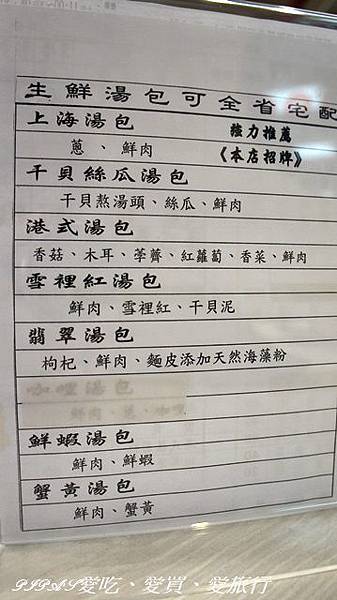 生鮮湯包可全省宅配
上海湯包 強力推薦
蔥、鮮肉 《本店招牌》
干貝絲瓜湯包
干貝熬湯頭、絲瓜、鮮肉
港式湯包
香菇、木耳、荸薺、紅蘿蔔、香菜、鮮肉
雪裡紅湯包
鮮肉、雪裡紅、干貝泥
翡翠湯包
枸杞、鮮肉、麵皮添加天然海藻粉
咖哩湯包
鮮肉、蔥、咖哩
鮮蝦湯包
鮮肉、鮮蝦
蟹黃湯包
鮮肉、蟹黃
PIPAS愛吃、愛買、愛旅行